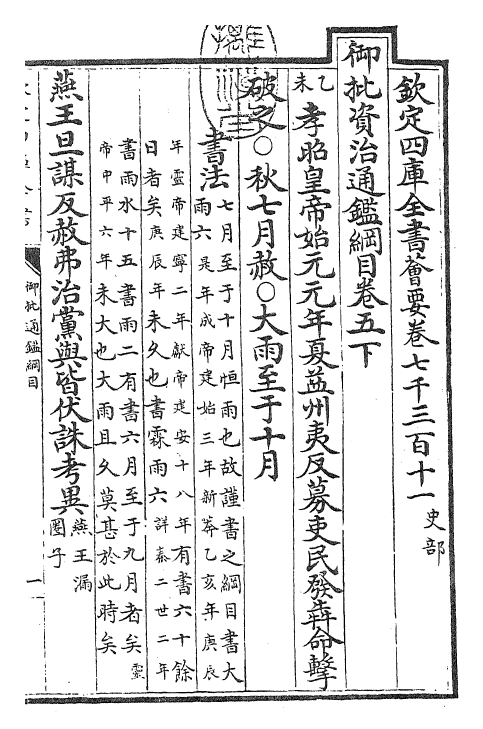 欽定四庫全書薈要卷七千三百十一 史部
御批資治通鑑綱目卷五下
乙未 孝昭皇帝始元元年夏益州夷反募吏民發犇命擊
破之○秋七月赦○大雨至于十月
書法 七月至于十月恒雨也故謹書之綱目書大
雨六是年成帝建始三年新莽乙亥年庚辰
年靈帝建寧二年獻帝建安十八年有書六十餘
日者矣庚辰年未久也書霖雨六詳秦二世二年
書雨水十五書雨二有書六月至于九月者矣靈
帝中平六年未大也大雨且久莫甚於此時矣
燕王旦謀反赦弗治黨與皆伏誅考異 燕王漏
圈子
御批通鑑綱目
一